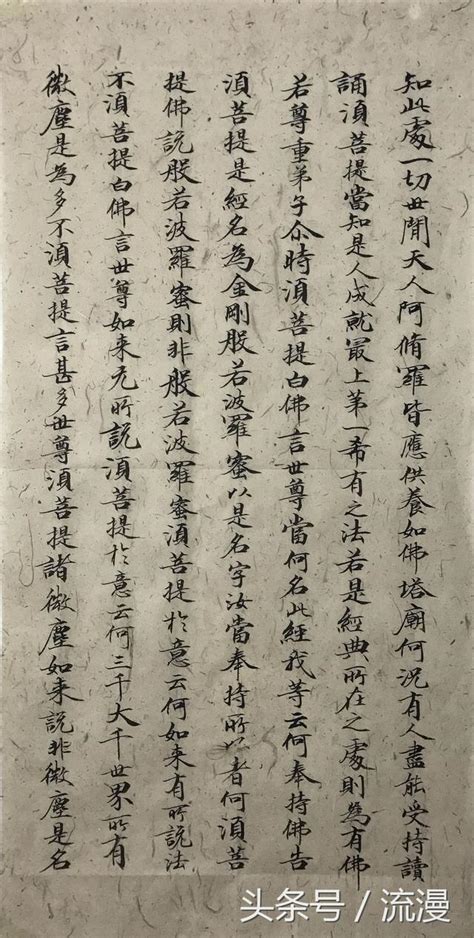 知此處一切世間天人阿脩羅皆應供養如佛塔廟何況有人盡能受持讀
誦湏菩提當知是人成就最上第一希有之法若是經典所在之處則為有佛
若尊重弟子尒時湏菩提白佛言世尊當何名此經我等云何奉持佛告
湏菩提是經名為金剛般若波羅蜜以是名字汝當奉持所以者何湏菩
提佛說般若波羅蜜則非般若波羅蜜湏菩提於意云何如来有所說法
不湏菩提白佛言世尊如来无所說湏菩提於意云何三千大千世界所有
微塵是為多不湏菩提言甚多世尊湏菩提諸微塵如来說非微塵是名
头条号 / 流漫